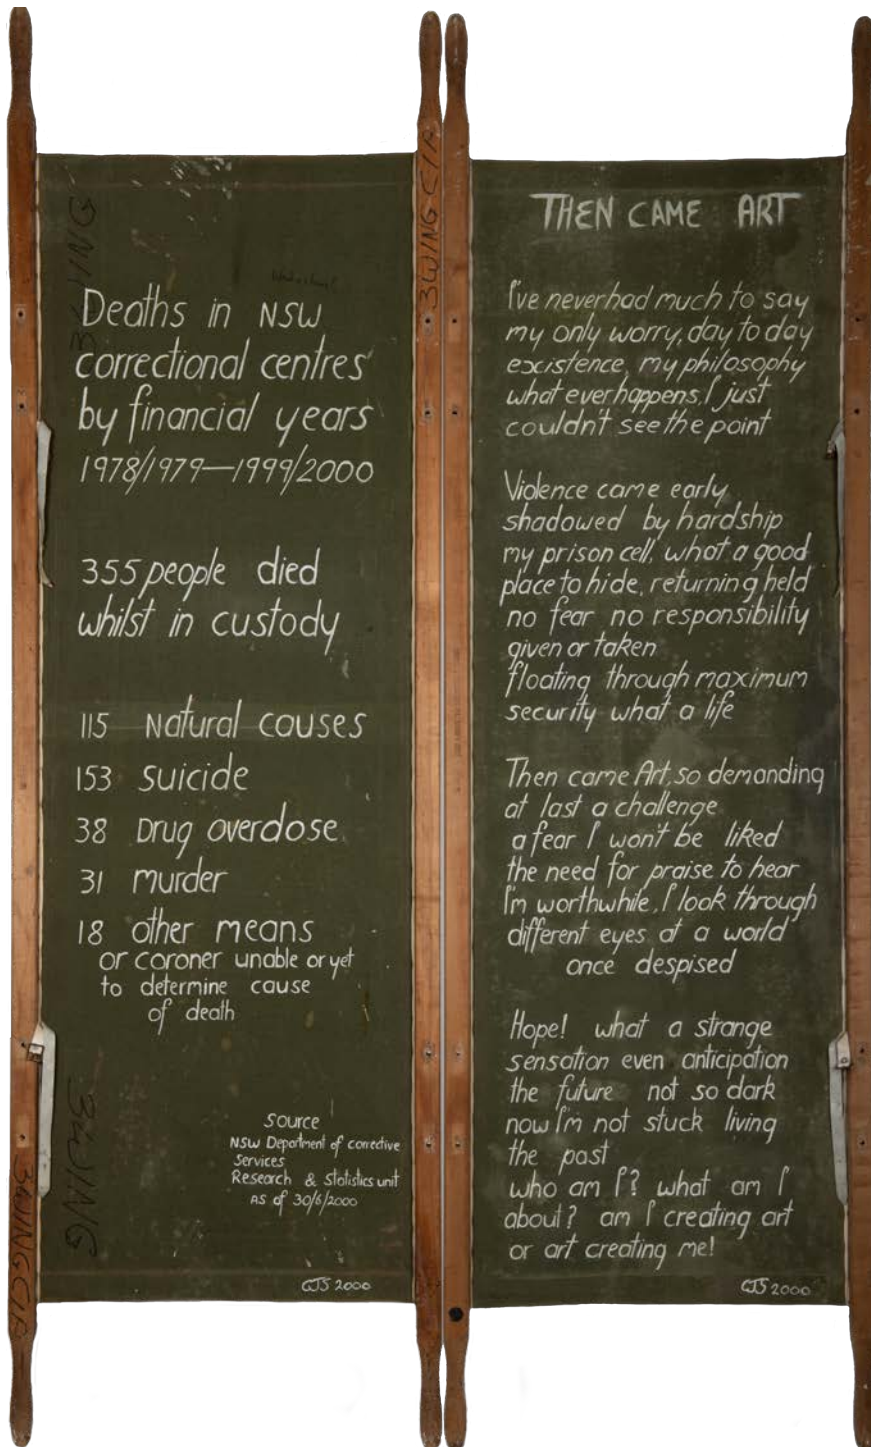 Deaths in NSW
correctional centres
by financial years
1978/1979—1999/2000
355 people died
whilst in custody
115 Natural causes
153 suicide
38 Drug overdose
31 murder
18 other means
or coroner unable or yet
to determine cause
of death
Source
NSW Department of corrective
Services
Research & Statistics unit
AS of 30/6/2000
GJS 2000
3 WING
3 WING
3 WING CIP
3 WING CIP
THEN CAME ART
I've never had much to say
my only worry, day to day
excistence, my philosophy
what ever happens, I just
couldn't see the point
Violence came early
shadowed by hardship
my prison cell, what a good
place to hide, returning held
no fear no responsibility
given or taken
floating through maximum
security what a life
Then came Art, so demanding
at last a challenge
a fear I won't be liked
the need for praise to hear
I'm worthwhile, I look through
different eyes, at a world
once despised
Hope! what a strange
sensation even anticipation
the future not so dark
now I'm not stuck living
the past
who am I? what am I
about? am I creating art
or art creating me!
GJS 2000